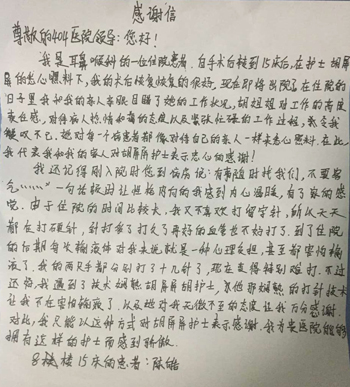 感谢信
尊敬的404医院领导：您好！
我是耳鼻喉科的一位住院患者。自手术后转到15床后，在护士胡屏
屏的悉心照料下，我的术后恢复恢复的很好，现在即将出院了在住院的
日子里我和我的家人亲眼目睹了她的工作状况，胡姐姐对工作的高度
责任感，对待病人热情和蔼的态度以及紧张忙碌的工作过程，都令我
赞叹不已，她对每个病患者都像对待自己的家人一样去悉心照料。在此
我代表我和我的家人对胡屏屏护士表示忠心的感谢！
我还记得刚入院时您到病房说：有事随时找我们，不要客
气……”一句话较时让把格内向的我感到内心温暖，有了家的感
觉。由于住院的时间比较长，我又不喜欢打留定针，所以天天
都在打硬针，针打多了打久了再好的血管也不好打了。到了住院
的后期每次输液体对我来说就是一种心理负担，甚至都害怕输
液了。我的两只手都分别打了十几针了，现在变得特别难打。不过
还好，我遇到了技术娴熟胡屏屏护士，凭他那娴熟的打针技术
让我不在害怕输液了。以及她对我无微不至的态度让我万分感谢。
对此，我只能以这种方式对胡屏屏护士表示感谢。我为贵医院能够
拥有这样的护士而感到骄傲。
8楼15床的患者：陈皓